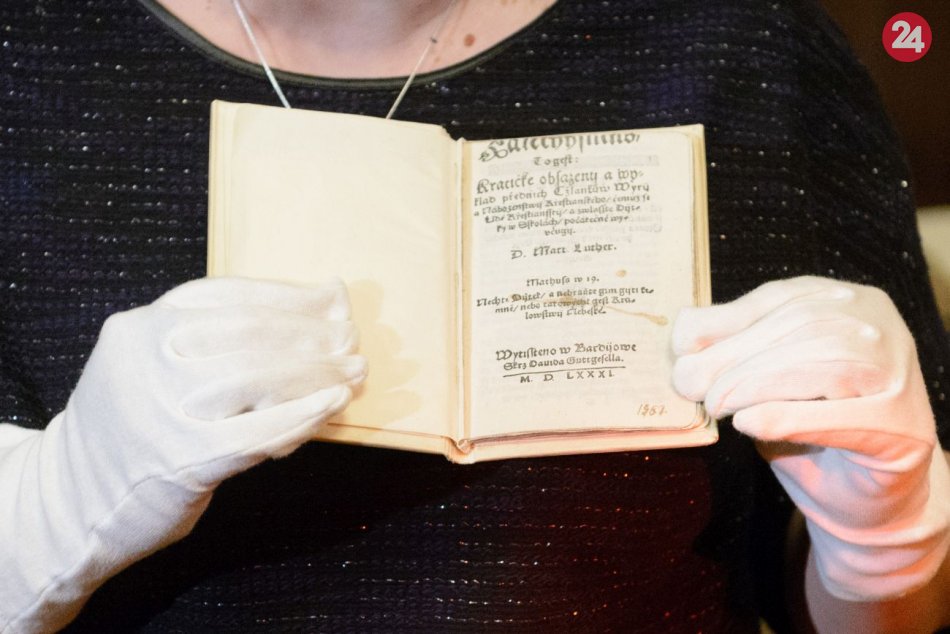 24
Katechysmus,
To gest:
Kratičke obsaženij a wy-
klad přednich Cžlankůw Wyry
a Náboženstwij Křestianského/ čemuž se
Lidé Křestiansstij/ a zwlásstě Dijt-
ky w Sskolách/ počátečně wy-
včugij.
D. Mart. Luther.
Mathusa w 19.
Nechte Dijtek/ a nebraňte gim gijti ke
mně/ nebo takowých gest Krá-
lowstwij Nebeské.
Wytisstěno w Bardijowě
Skrz Dawida Guttgesella.
M. D. LXXXI.